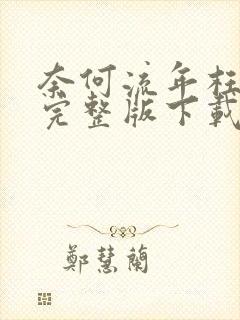 奈何流年枉
完整版下載
鄭慧蘭